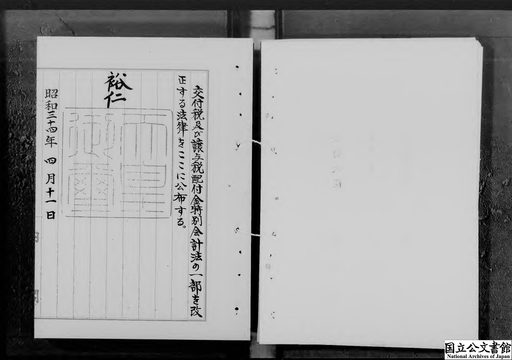 交付税及び譲与税配付金特別会計法の一部を改
正する法律をここに公布する。
裕仁
天皇御璽
昭和三十四年四月十一日
国立公文書館
National Archives of Japan